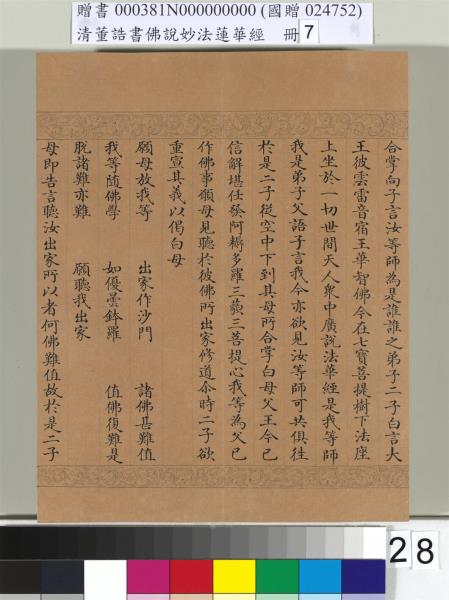 贈書 000381N000000000 (國贈 024752)
清董誥書佛說妙法蓮華經 冊 7
合掌向子言汝等師為是誰誰之弟子二子白言大
王彼雲雷音宿王華智佛今在七寶菩提樹下法座
上坐於一切世間天人眾中廣說法華經是我等師
我是弟子父語子言我今亦欲見汝等師可共俱往
於是二子從空中下到其母所合掌白母父王今已
信解堪任發阿耨多羅三藐三菩提心我等為父已
作佛事願母見聽於彼佛所出家修道尒時二子欲
重宣其義以偈白母
願母放我等 出家作沙門 諸佛甚難值
我等隨佛學 如優曇鉢羅 值佛復難是
脫諸難亦難 願聽我出家
母即告言聽汝出家所以者何佛難值故於是二子
28